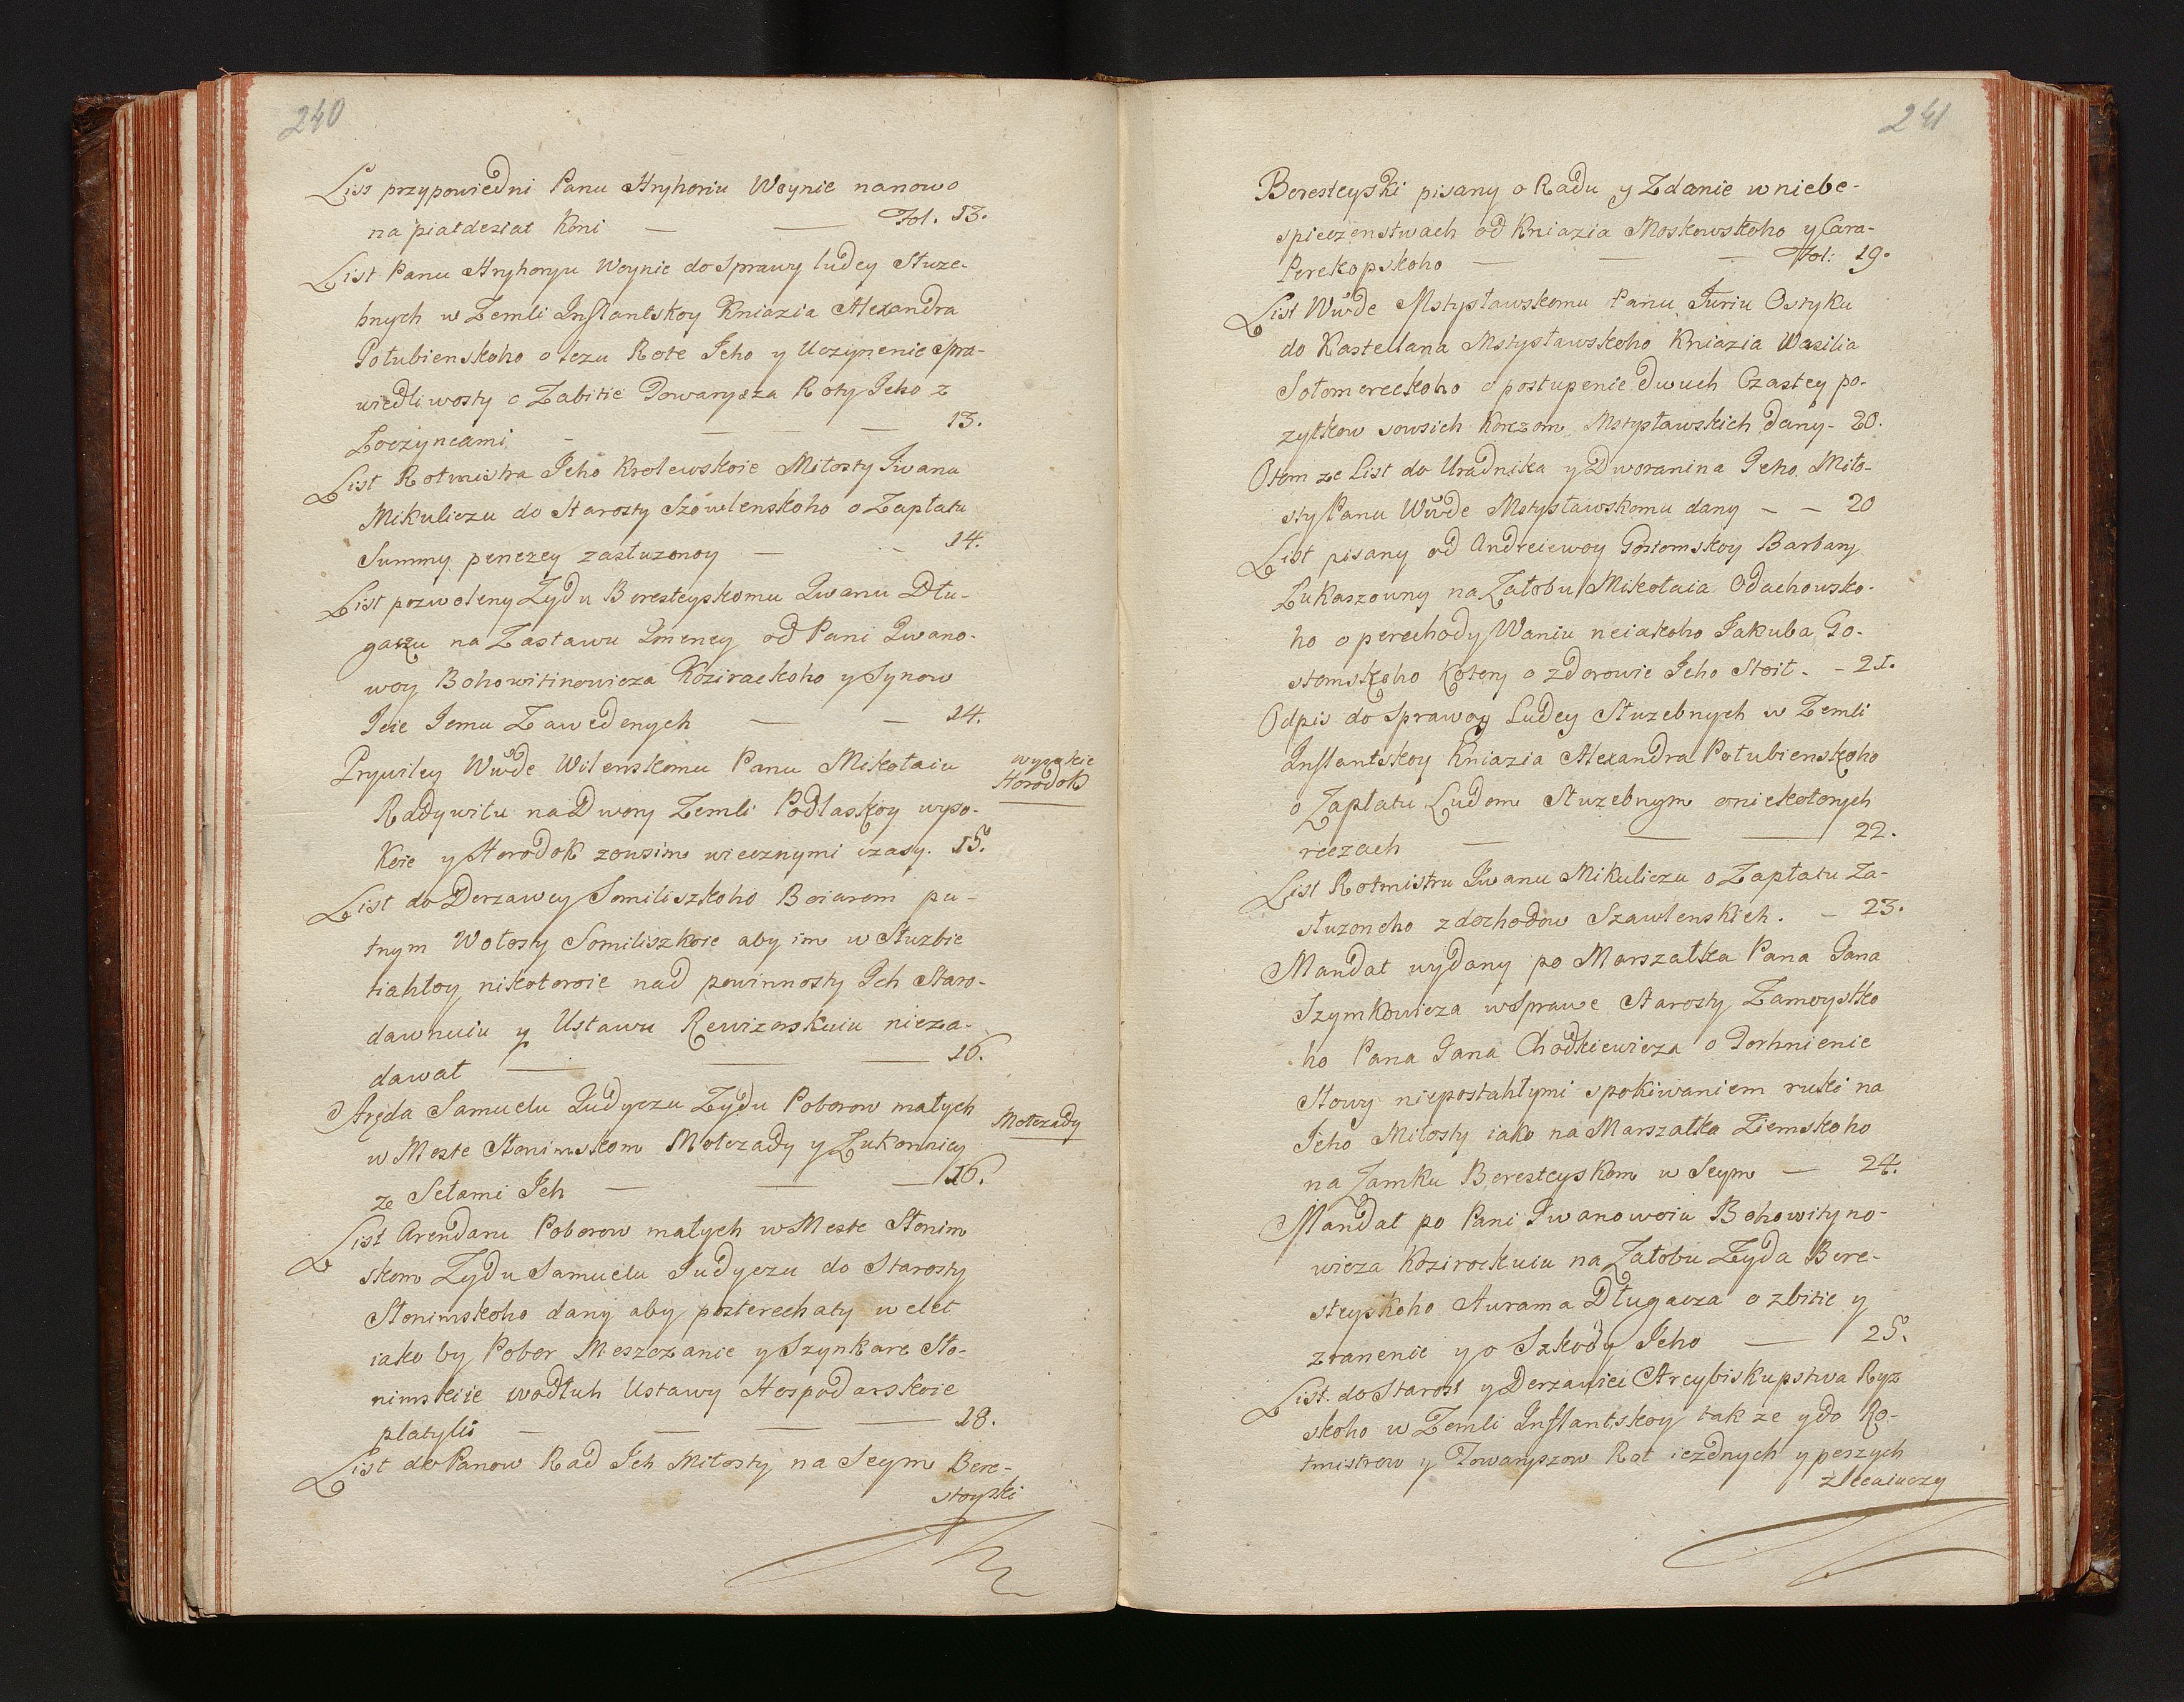 240
List przypowiedni Panu Hryhoriu Woynie nanowo
na piatdesiat Koni — — Fol. 13.
List Panu Hryhoryu Woynie do Sprawy ludey Słuze-
bnych w Zemli Inflantskoy Kniazia Alexandra
Połubienskoho o tezu Rote Jeho y Uczynenie Spra-
wiedliwosty o Zabitie Towarysza Roty Jeho z
Łoczyncami — — — 13.
List Rotmistra Jeho Krolewskoie Miłosty Iwana
Mikuliczu do Starosty Szowlenskoho o Zapłatu
Summy penezey zasłuzonoy — — 14.
List pozwoleny Zydu Beresteyskomu Iwanu Dłu-
gaczu na Zastawu Imeney od Pani Iwano-
woy Bohowitinowicza Kozirackoho y Synow
Jeie Jemu Zawedenych — — 14.
Prywiley Wwde Wilenskomu Panu Mikołaiu
wysokie
Horodok
Radywiłu na Dwory Zemli Podlaskoy wyso-
Koie y Horodok zowsim wiecznymi czasy. 15.
List do Derzawcy Somiliszkoho Boiarom pu-
tnym Wołosty Somiliszkoie aby im w Służbie
tiahłoy nikotoroie nad powinnosty Ich Staro-
dawnuiu y Ustawu Rewizorskuiu nieza-
dawał — — — 16.
Aręda Samuelu Judyczu Zydu Poborow małych
Mołczady
w Meste Słonimskom Mołczady y Zukownicy
ze Sełami Ich — — — 16.
List Arendaru Poborow małych w Meste Słonim
skom Zydu Samuelu Judyczu do Starosty
Słonimskoho dany aby posterechaty welet
iako by Pobor Meszczanie y Szynkare Sło-
nimskiie wodłuh Ustawy Hospodarskoie
płatyli — — — 18.
List do Panow Rad Ich Miłosty na Seym Bere-
steyski
241
Beresteyski pisany o Radu y Zdanie w niebe-
spieczenstwach od Kniazia Moskowskoho y Cara-
Perekopskoho — — — Fol: 19.
List Wwde Mstysławskomu Panu Juriu Ostyku
do Kasztellana Mstysławskoho Kniazia Wasilia
Sołomereckoho o postupenie dwuch Czastey po-
zytkow sowsich Korczom Mstysławskich dany - 20.
O tem ze List do Uradnika y Dworanina Jeho Miło-
sty Panu Wwde Mstysławskomu dany — — 20
List pisany od Andreiewoy Gostomskoy Barbary
Łukaszowny na Załobu Mikołaia Odachowsko-
ho o perechodyWaniu neiakoho Jakuba Go-
stomskoho Kotery o zdorowie Jeho Stoit. - 21.
Odpis do Sprawcy Ludey Słuzebnych w Zemli
Inflantskoy Kniazia Alexandra Połubienskoho
o Zapłatu Ludem Słuzebnym o niekotorych
reczach — — — 22.
List Rotmistru Iwanu Mikuliczu o Zapłatu Za-
słuzoneho z dochodow Szawlenskich. — 23.
Mandat wydany po Marszałka Pana Jana
Szymkowicza w Sprawe Starosty Zamoystko
ho Pana Jana Chodkiewicza o Torhnienie
Słowy niepostahłymi spokiwaniem ruki na
Jeho Miłosty iako na Marszałka Ziemskoho
na Zamku Beresteyskom w Seym — 24.
Mandat po Pani Iwanowoiu Bohowityno-
wicza Kozirockuiu na Załobu Zyda Bere-
steyskoho Awrama Długacza o zbitie y
zranenie y o Szkody Jeho — 25.
List do Starost y Derzawiei Arcybiskupstwa Ryz
skoho w Zemli Inflantskoy tak ze y do Ro-
tmistrow y Towaryszow Rot iezdnych y peszych
zlecaiuczy